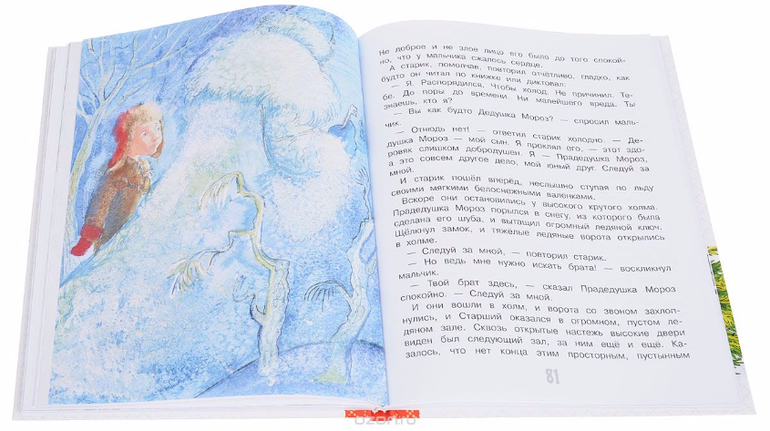 Не доброе и не злое лицо его было до того спокой-
но, что у мальчика сжалось сердце.
А старик, помолчав, повторил отчётливо, гладко, как
будто он читал по книжке или диктовал:
— Я. Распорядился. Чтобы холод. Не причинил. Те-
бе. До поры до времени. Ни малейшего вреда. Ты
знаешь, кто я?
— Вы как будто Дедушка Мороз? — спросил маль-
чик.
— Отнюдь нет! — ответил старик холодно. — Де-
душка Мороз — мой сын. Я проклял его, — этот здо-
ровяк слишком добродушен. Я — Прадедушка Мороз,
а это совсем другое дело, мой юный друг. Следуй за
мной.
И старик пошёл вперёд, неслышно ступая по льду
своими мягкими белоснежными валенками.
Вскоре они остановились у высокого крутого холма.
Прадедушка Мороз порылся в снегу, из которого была
сделана его шуба, и вытащил огромный ледяной ключ.
Щёлкнул замок, и тяжёлые ледяные ворота открылись
в холме.
— Следуй за мной, — повторил старик.
— Но ведь мне нужно искать брата! — воскликнул
мальчик.
— Твой брат здесь, — сказал Прадедушка Мороз
спокойно. — Следуй за мной.
И они вошли в холм, и ворота со звоном захлоп-
нулись, и Старший оказался в огромном, пустом ле-
дяном зале. Сквозь открытые настежь высокие двери
виден был следующий зал, за ним ещё и ещё. Ка-
залось, что нет конца этим просторным, пустынным
81
ozon.ru